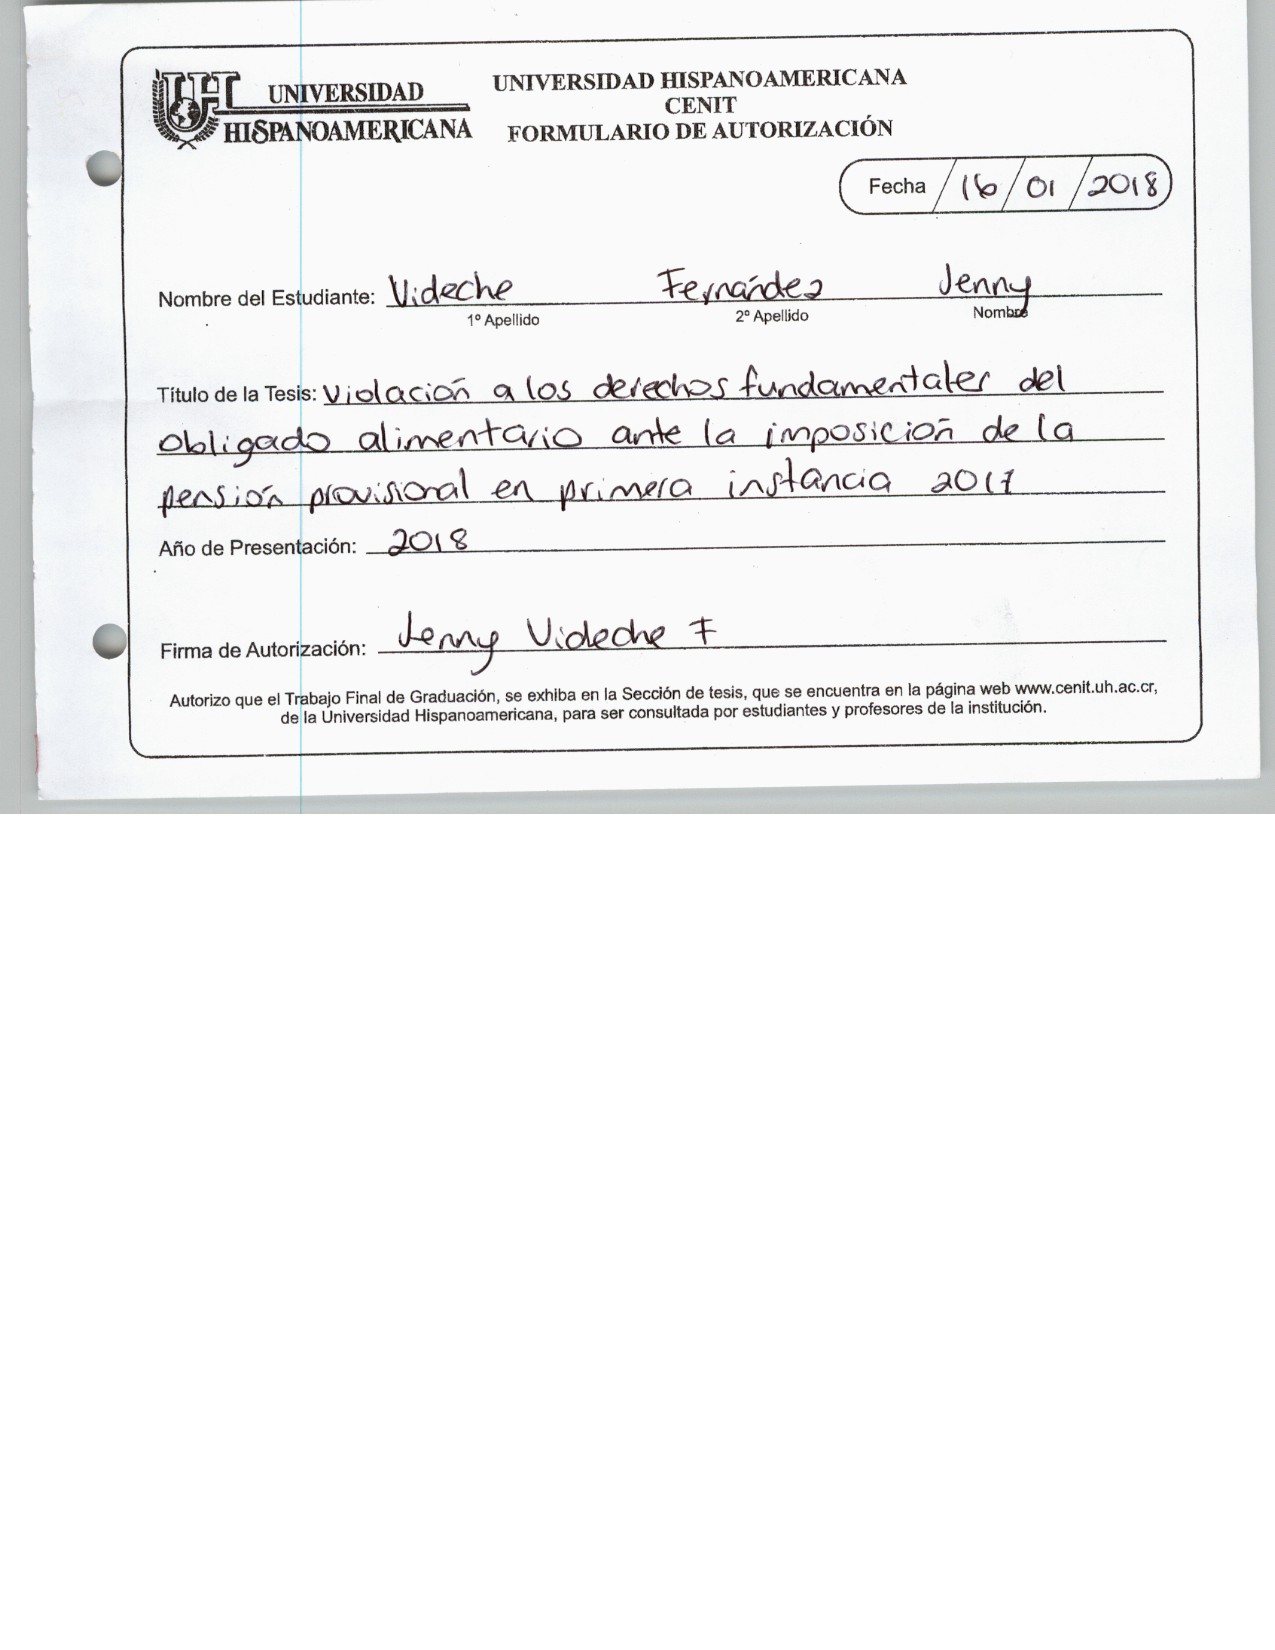 UNIVERSIDAD
HISPANOAMERICANA
UNIVERSIDAD HISPANOAMERICANA
CENIT
FORMULARIO DE AUTORIZACIÓN
Fecha / 16 / 01 / 2018
Nombre del Estudiante: Videche Fernández Jenny
1º Apellido 2º Apellido Nombre
Título de la Tesis: Violación a los derechos fundamentales del
obligado alimentario ante la imposición de la
pensión provisional en primera instancia 2017
Año de Presentación: 2018
Firma de Autorización: Jenny Videche F
Autorizo que el Trabajo Final de Graduación, se exhiba en la Sección de tesis, que se encuentra en la página web www.cenit.uh.ac.cr,
de la Universidad Hispanoamericana, para ser consultada por estudiantes y profesores de la institución.